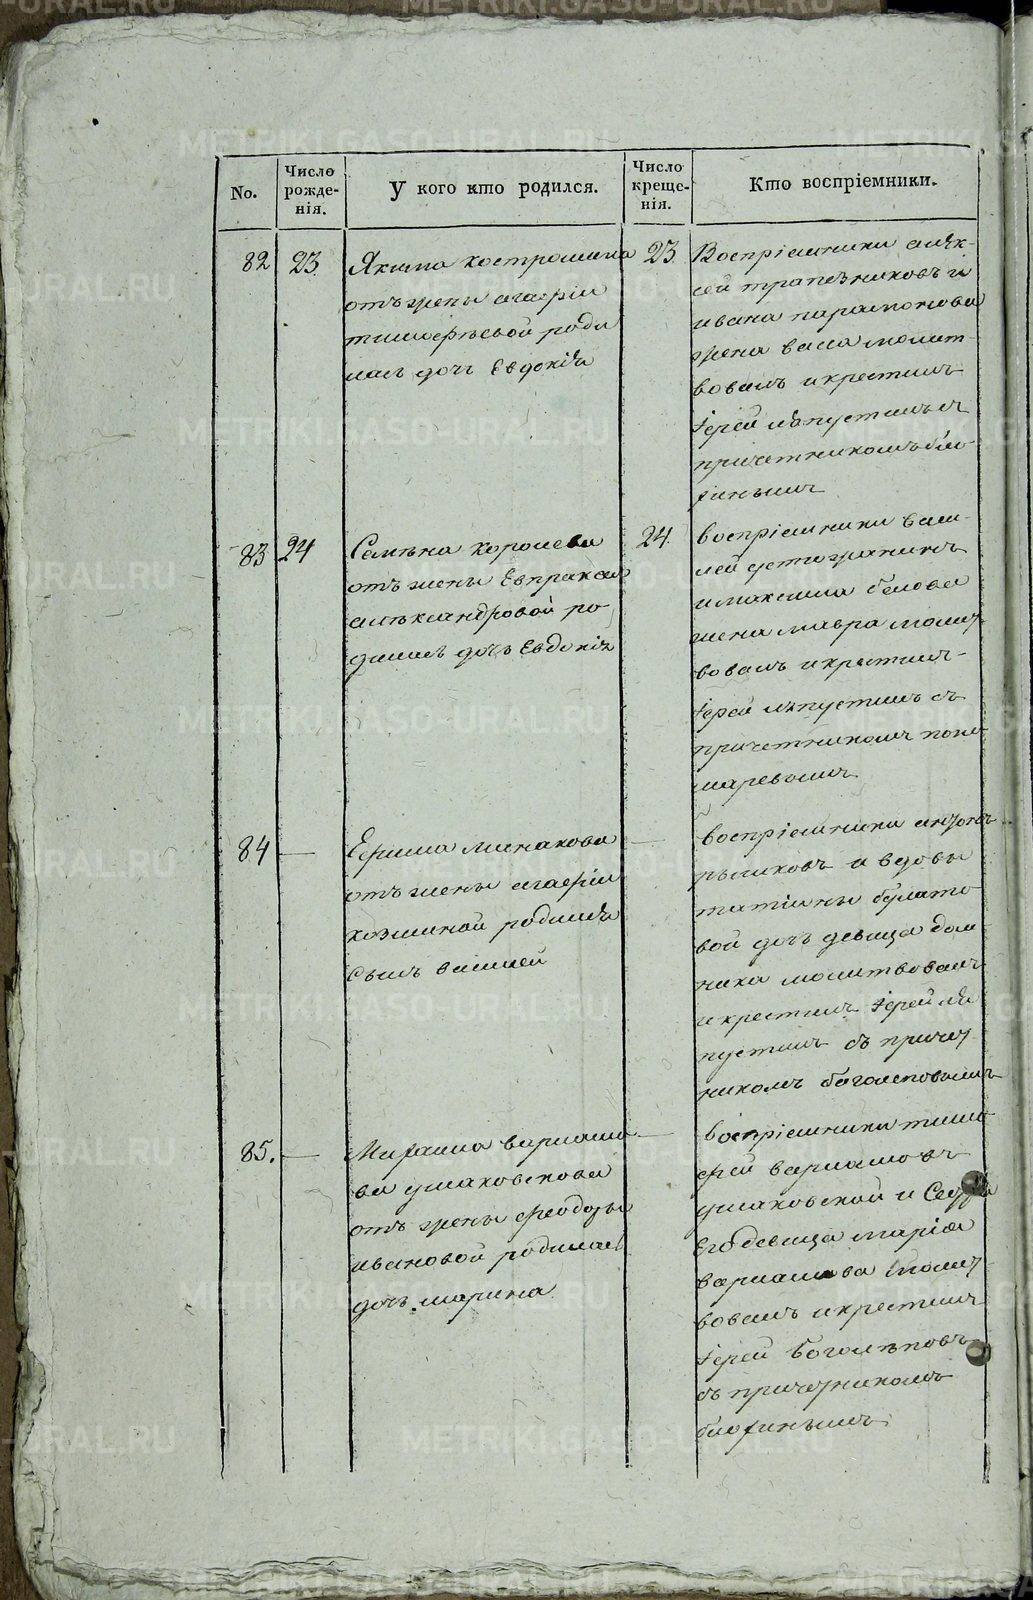 No.
Число рожде-нія.
У кого кто родился.
Число креще-нія.
Кто воспріемники.
82
23
Якима костромина
отъ жены агафіи
тимофѣевой роди
лась дочь Евдокія
23
Воспріемники алѣк-
сѣй трапезниковъ и
ивана парамонова
жена васса молит-
вовалъ и крестилъ
іерей лѣпустинъ съ
причетникомъ
83
24
Семѣна королева
отъ жены Евпраксіи
алѣксандровой ро-
дилась дочь Евдокія
24
воспріемники васи-
лей устюжанинъ
и максима белова
жена мавра молит-
вовалъ и крестилъ
іерей лѣпустинъ съ
причетникомъ поно-
маревымъ
84
Ефима минакова
отъ жены агафіи
козминой родился
сынъ василей
воспріемники антонъ
рычковъ и вдовы
татіяны булато-
вой дочь девица дом-
ника молитвовалъ
и крестилъ іерей лѣ
пустинъ съ причет
никомъ боголеповымъ
85.
Михаила варламо
ва ушаковскова
отъ жены феодоры
ивановой родилась
дочь марина
воспріемники тимо
фей варламовъ
ушаковской и Сестра
Его девица марія
варламова молит-
вовалъ и крестилъ
іерей боголѣповъ
съ причетникомъ